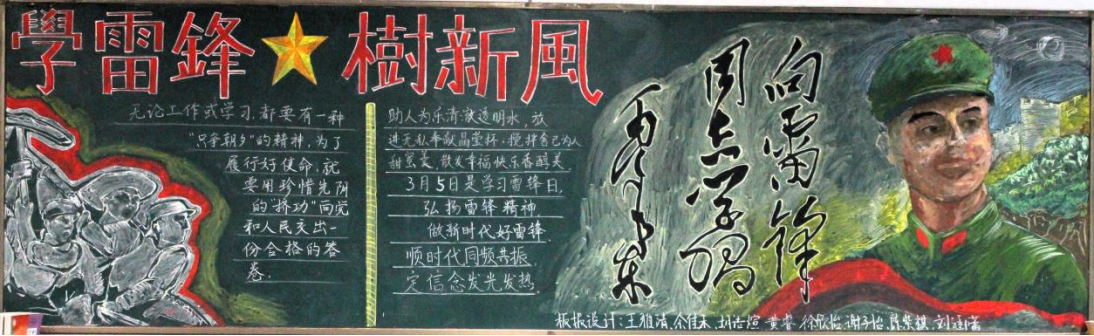 學雷鋒★樹新風
无论工作或学习,都要有一种
"只争朝夕"的精神,为了
履行好使命,就
要用珍惜光阴
的"挤功"向党
和人民交出一
份合格的答
卷.
助人为乐清澈透明水,放
进无私奉献晶莹杯,搅拌舍己为人
甜蜜蜜,散发幸福快乐香醇美.
3月5日是学习雷锋日,
弘扬雷锋精神
做新时代好雷锋,
顺时代同频共振,
定信念发光发热.
向雷锋
同志学习
毛泽东
板报设计:王雅清,余佳禾